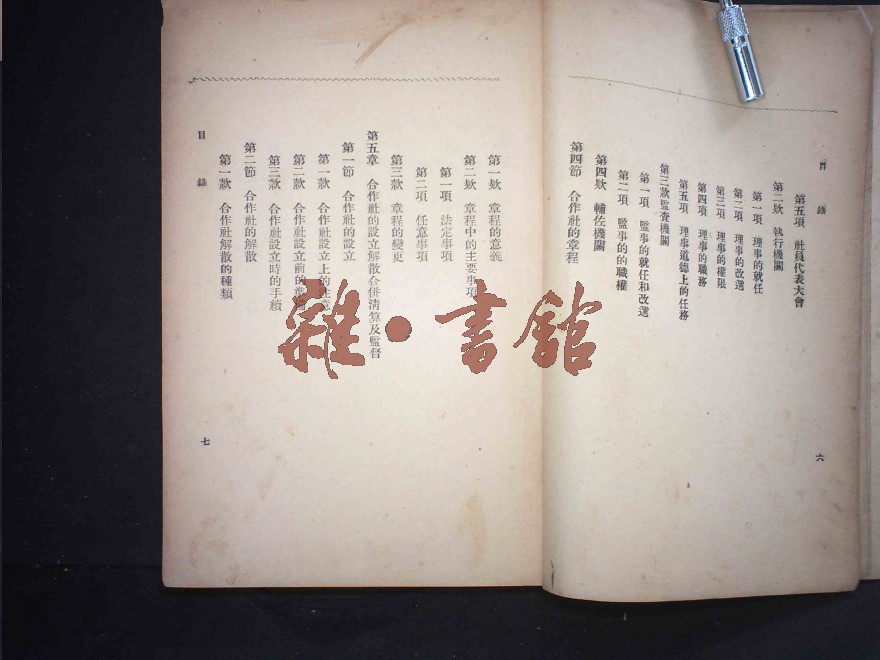 目錄
第五項 社員代表大會
第二欵 執行機關
第一項 理事的就任
第二項 理事的改選
第三項 理事的權限
第四項 理事的職務
第五項 理事道德上的任務
第三欵監查機關
第一項 監事的就任和改選
第二項 監事的的職權
第四欵 輔佐機關
第四節 合作社的章程
六
第一欵 章程的意義
第二欵 章程中的主要事項
第一項 法定事項
第二項 任意事項
第三欵 章程的變更
第五章 合作社的設立解散合併清算及監督
第一節 合作社的設立
第一欵 合作社設立上的注意
第二欵 合作社設立前的準備
第三欵 合作社設立時的手續
第二節 合作社的解散
第一欵 合作社解散的種類
目錄
七
雜·書館